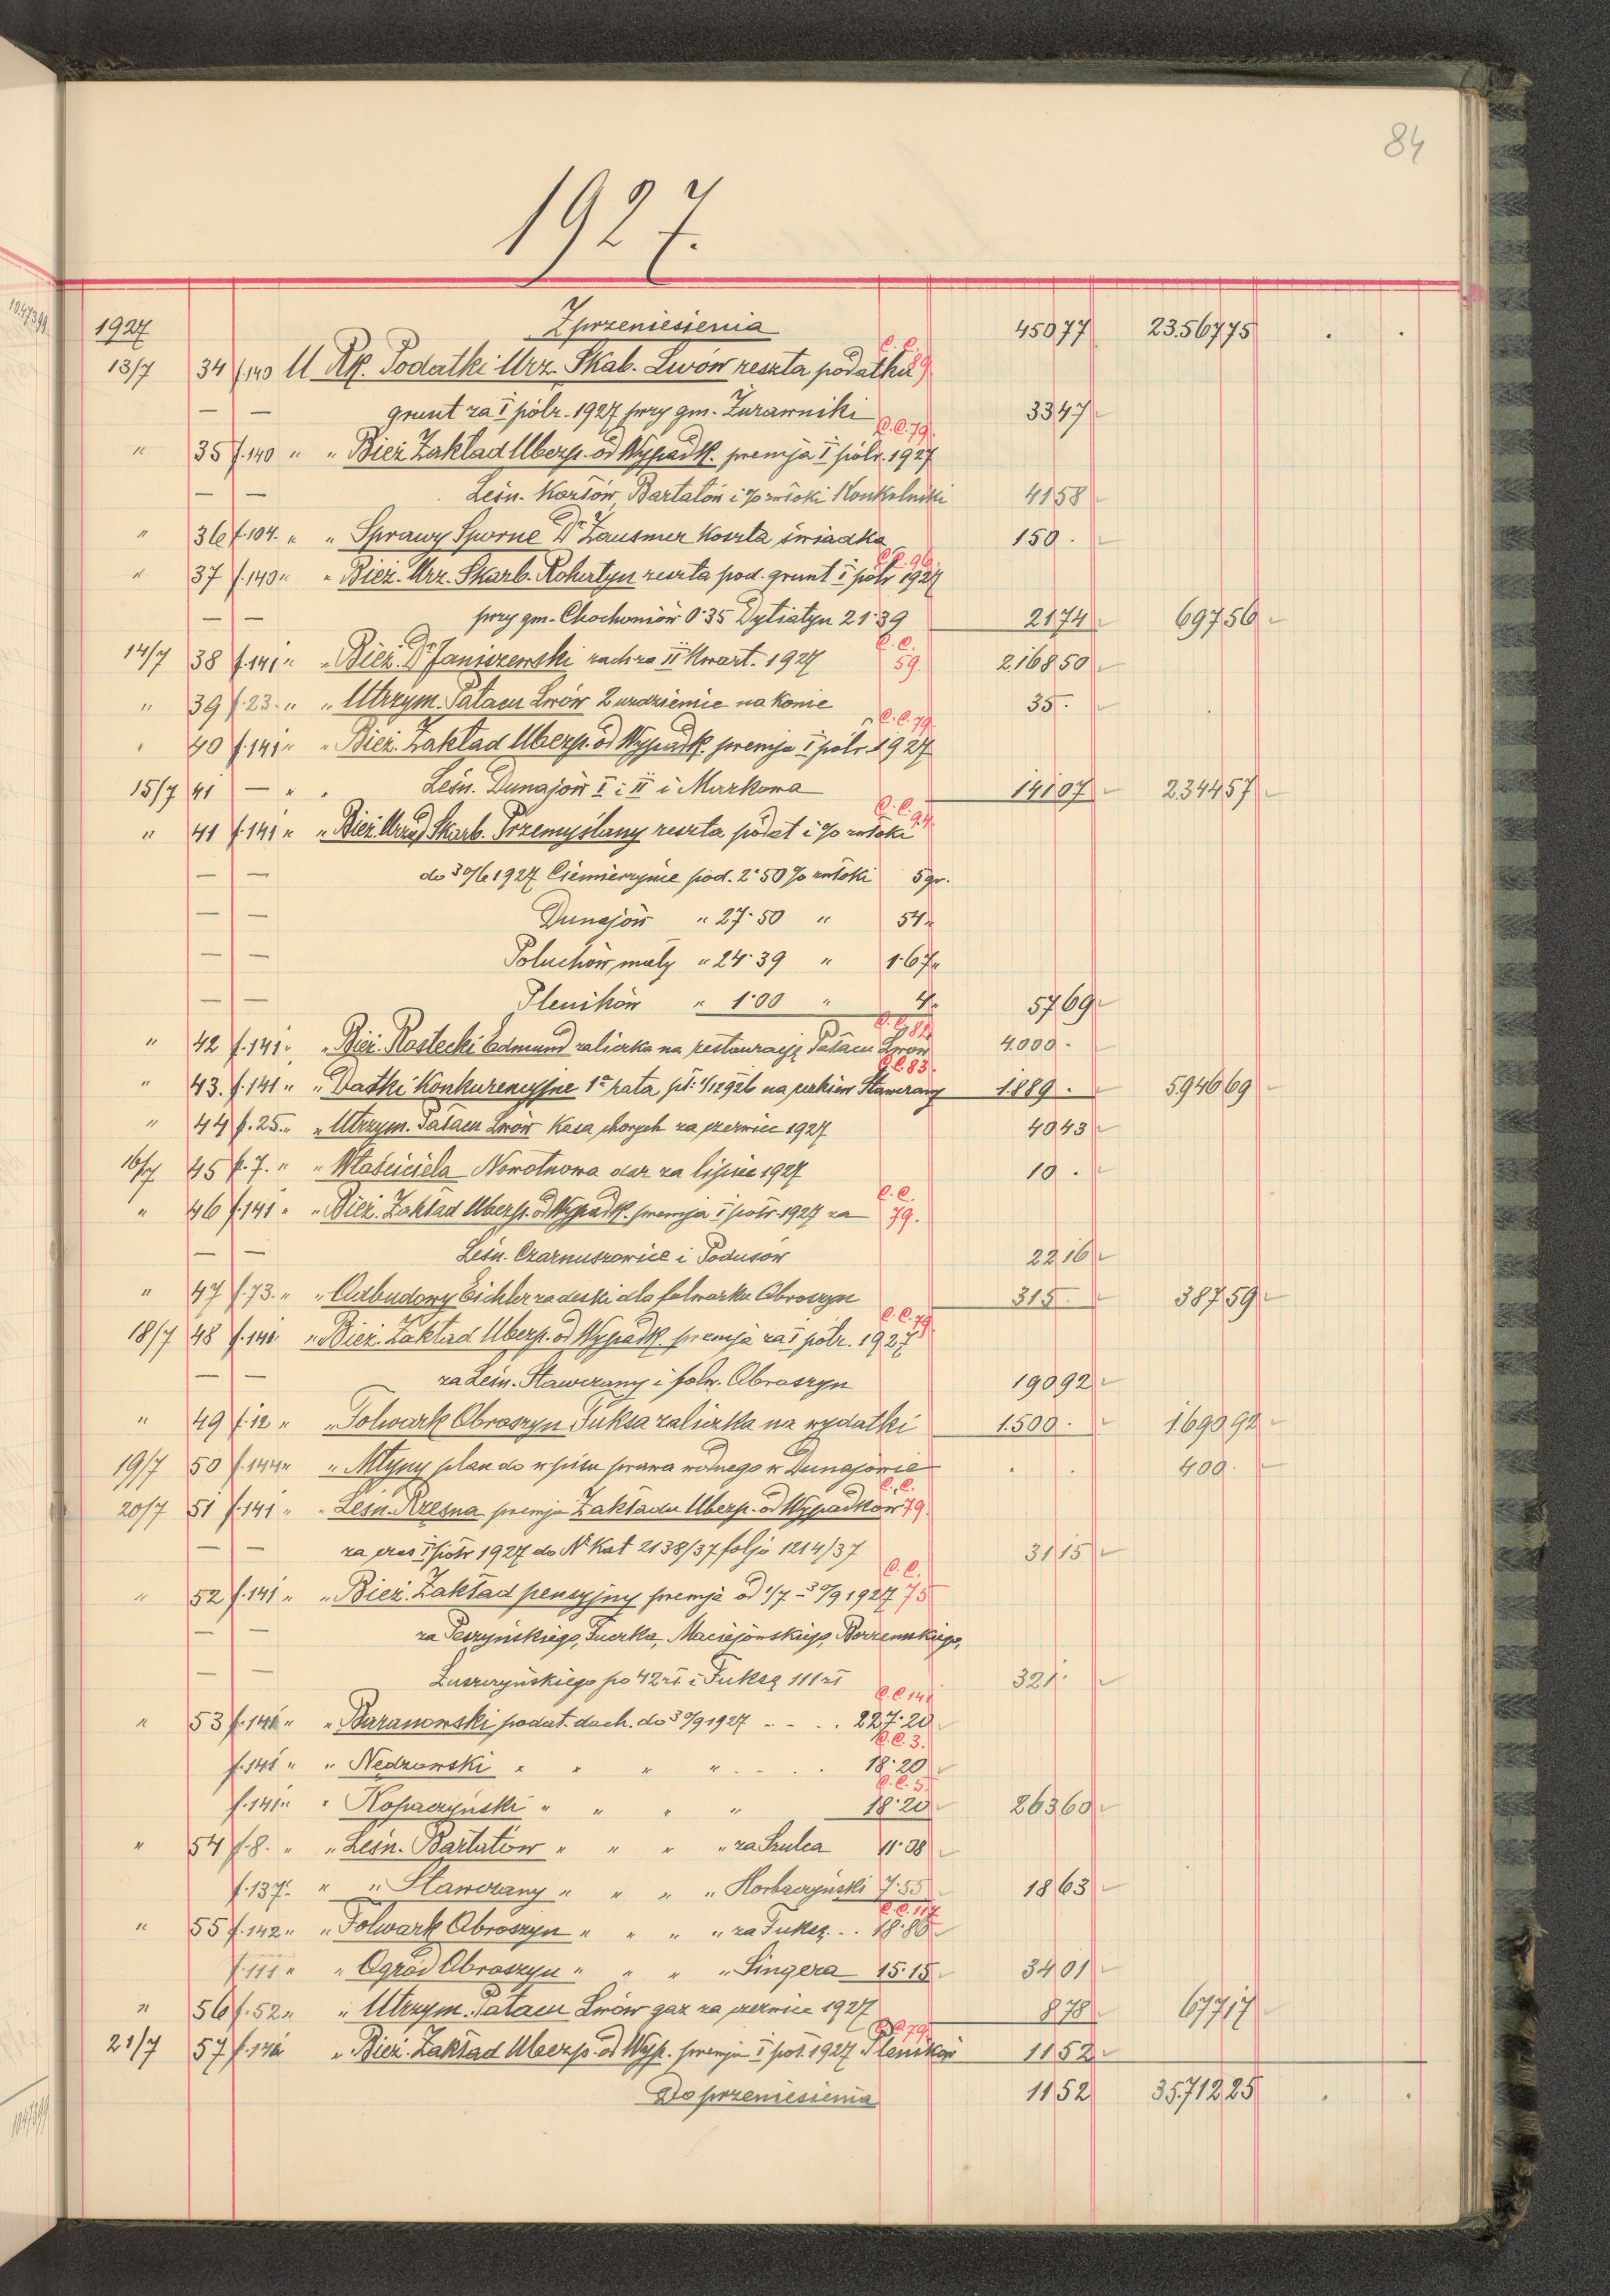 84
1927.
1927 Z przeniesienia 450 77 23.567 75 . .
13/7 34 f.140 U Rk. Podatki Urz. Skab. Lwów reszta podatku C.C. 89
— — grunt za I półr. 1927 przy gm. Żurawniki 33 47
" 35 f.140 " " Bież. Zakład Ubezp. od Wypadk. premja I półr. 1927 C.C. 79.
— — Leśn. Korzów, Bartatów i % zwłoki Konkolniki 41 58
" 36 f.104. " " Sprawy Sporne Dr Zausmer Koszta świadka 150 .
" 37 f.140 " " Bież. Urz. Skarb. Rohatyn reszta pod. grunt I półr 1927 C.C. 96.
— — przy gm. Chochoniów 0·35 Dytiatyn 21·39 21 74 697 56
14/7 38 f.141 " " Bież. Dr Janiszewski rach za II Kwart. 1927 C.C. 59. 2.168 50
" 39 f.23. " " Utrzym. Pałacu Lwów 2 uzdzienice na konie 35 .
" 40 f.141 " " Bież. Zakład Ubezp. od Wypadk. premja I półr 1927 C.C. 79.
15/7 41 — " " Leśn. Dunajów I i II i Markowa 141 07 2.344 57
" 41 f.141 " " Bież. Urząd Skarb. Przemyślany reszta podat i % zwłoki C.C. 94.
— — do 30/6 1927 Ciemierzyńce pod. 2·50 % zwłoki 5 gr.
— — Dunajów " 27·50 " 54 "
— — Poluchów mały " 24·39 " 1·67 "
— — Pleników " 1·00 " 4 " 57 69
" 42 f.141 " " Bież. Rostecki Edmund zaliczka na restaurację Pałacu Lwów C.C. 82. 4.000 -
" 43. f.141 " " Datki Konkurencyjne 1a rata, pł: 1/12 926 na cerkiew Stawczany C.C. 83. 1.889 . 5.946 69
" 44 f.25. " " Utrzym. Pałacu Lwów Kasa chorych za czerwiec 1927 40 43
16/7 45 f.7. " " Właściciela Nowotnowa dar za lipiec 1927 10 .
" 46 f.141 " " Bież. Zakład Ubezp. od Wypadk. premja I półr. 1927 za C.C. 79.
— — Leśn. Czarnuszowice i Podusów 22 16
" 47 f.73. " " Odbudowy Eichler za deski dla folwarku Obroszyn 315 . 387 59
18/7 48 f.141 " Bież. Zakład Ubezp. od Wypadk. premja za I półr. 1927 C.C. 79.
— — za Leśn. Stawczany i folw. Obroszyn 190 92
" 49 f.12 " " Folwark Obroszyn Fuksa zaliczka na wydatki 1.500 . 1.690 92
19/7 50 f.144 " " Młyny plan do wpisu prawa wodnego w Dunajowie . . 400 .
20/7 51 f.141 " " Leśn. Kręsna premja Zakładu Ubezp. od Wypadków C.C. 79.
— — za czas I półr 1927 do № Kat 2138/37 foljo 1214/37 31 15
" 52 f.141 " " Bież. Zakład pensyjny premja od 1/7 - 30/9 1927 C.C. 75
— — za Paszyńskiego, Maciejowskiego,
— — Łuszczyńskiego po 42 zł. i Fuksę 111 zł 321 .
" 53 f.141 " " Baranowski podat. doch. do 30/9 1927 - - . . 227·20 C.C. 141
f.141 " " Nędzowski " " " " . - . . 18·20 C.C. 3.
f.141 " " Kopaczyński " " " " 18·20 C.C. 5. 263 60
" 54 f.8. " " Leśn. Bartatów " " " " za Szulca 11·08
f.137. " " Stawczany " " " " Horbaczyński 7·55 18 63
" 55 f.142 " " Folwark Obroszyn " " " " za Fuksę . . 18·86 C.C. 117
f.111 " " Ogród Obroszyn " " " " Singera 15·15 34 01
" 56 f.52 " " Utrzym. Pałacu Lwów gaz za czerwiec 1927 8 78 677 17
21/7 57 f.141 " Bież. Zakład Ubezp. od Wyp. premja I poł. 1927 Pleników C.C. 79. 11 52
Do przeniesienia 11 52 35.712 25 . .